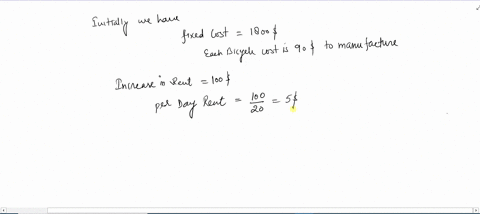 Initially we have
fixed Cost = 1800 $
Each Bicycle cost is 90 $ to manufacture
Increase in Rent = 100 $
per Day Rent = 100/20 = 5 $